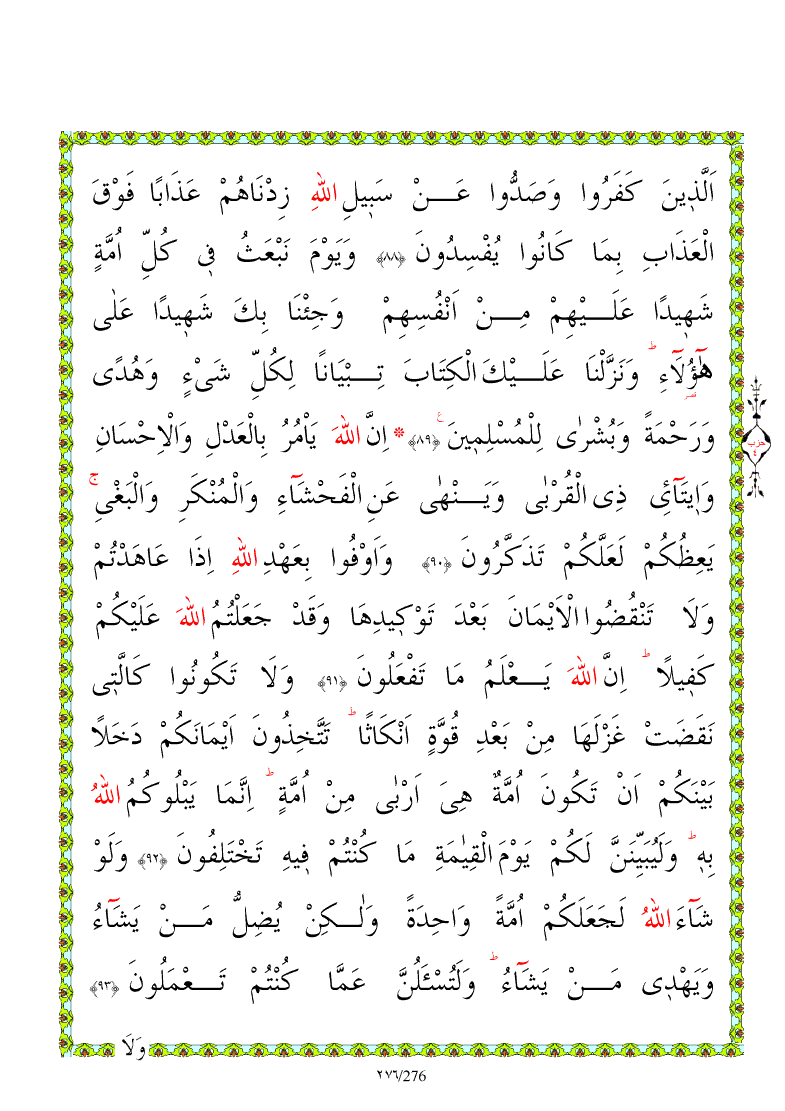 اَلَّذ۪ينَ كَفَرُوا وَصَدُّوا عَنْ سَب۪يلِ اللّٰهِ زِدْنَاهُمْ عَذَابًا فَوْقَ
الْعَذَابِ بِمَا كَانُوا يُفْسِدُونَ ﴿٨٨﴾ وَيَوْمَ نَبْعَثُ ف۪ي كُلِّ اُمَّةٍ
شَه۪يدًا عَلَيْهِمْ مِنْ اَنْفُسِهِمْ وَجِئْنَا بِكَ شَه۪يدًا عَلٰى
هٰٓؤُ۬لَٓاءِۜ وَنَزَّلْنَا عَلَيْكَ الْكِتَابَ تِبْيَانًا لِكُلِّ شَيْءٍ وَهُدًى
وَرَحْمَةً وَبُشْرٰى لِلْمُسْلِم۪ينَ۟ ﴿٨٩﴾ * اِنَّ اللّٰهَ يَأْمُرُ بِالْعَدْلِ وَالْاِحْسَانِ
وَا۪يتَٓائِ ذِي الْقُرْبٰى وَيَنْهٰى عَنِ الْفَحْشَٓاءِ وَالْمُنْكَرِ وَالْبَغْيِۚ
يَعِظُكُمْ لَعَلَّكُمْ تَذَكَّرُونَ ﴿٩٠﴾ وَاَوْفُوا بِعَهْدِ اللّٰهِ اِذَا عَاهَدْتُمْ
وَلَا تَنْقُضُوا الْاَيْمَانَ بَعْدَ تَوْك۪يدِهَا وَقَدْ جَعَلْتُمُ اللّٰهَ عَلَيْكُمْ
كَف۪يلًاۜ اِنَّ اللّٰهَ يَعْلَمُ مَا تَفْعَلُونَ ﴿٩١﴾ وَلَا تَكُونُوا كَالَّت۪ي
نَقَضَتْ غَزْلَهَا مِنْ بَعْدِ قُوَّةٍ اَنْكَاثًاۜ تَتَّخِذُونَ اَيْمَانَكُمْ دَخَلًا
بَيْنَكُمْ اَنْ تَكُونَ اُمَّةٌ هِيَ اَرْبٰى مِنْ اُمَّةٍۜ اِنَّمَا يَبْلُوكُمُ اللّٰهُ
بِه۪ۜ وَلَيُبَيِّنَنَّ لَكُمْ يَوْمَ الْقِيٰمَةِ مَا كُنْتُمْ ف۪يهِ تَخْتَلِفُونَ ﴿٩٢﴾ وَلَوْ
شَٓاءَ اللّٰهُ لَجَعَلَكُمْ اُمَّةً وَاحِدَةً وَلٰكِنْ يُضِلُّ مَنْ يَشَٓاءُ
وَيَهْد۪ي مَنْ يَشَٓاءُۜ وَلَتُسْـَٔلُنَّ عَمَّا كُنْتُمْ تَعْمَلُونَ ﴿٩٣﴾
حزب
٤
وَلَا
٢٧٦/276